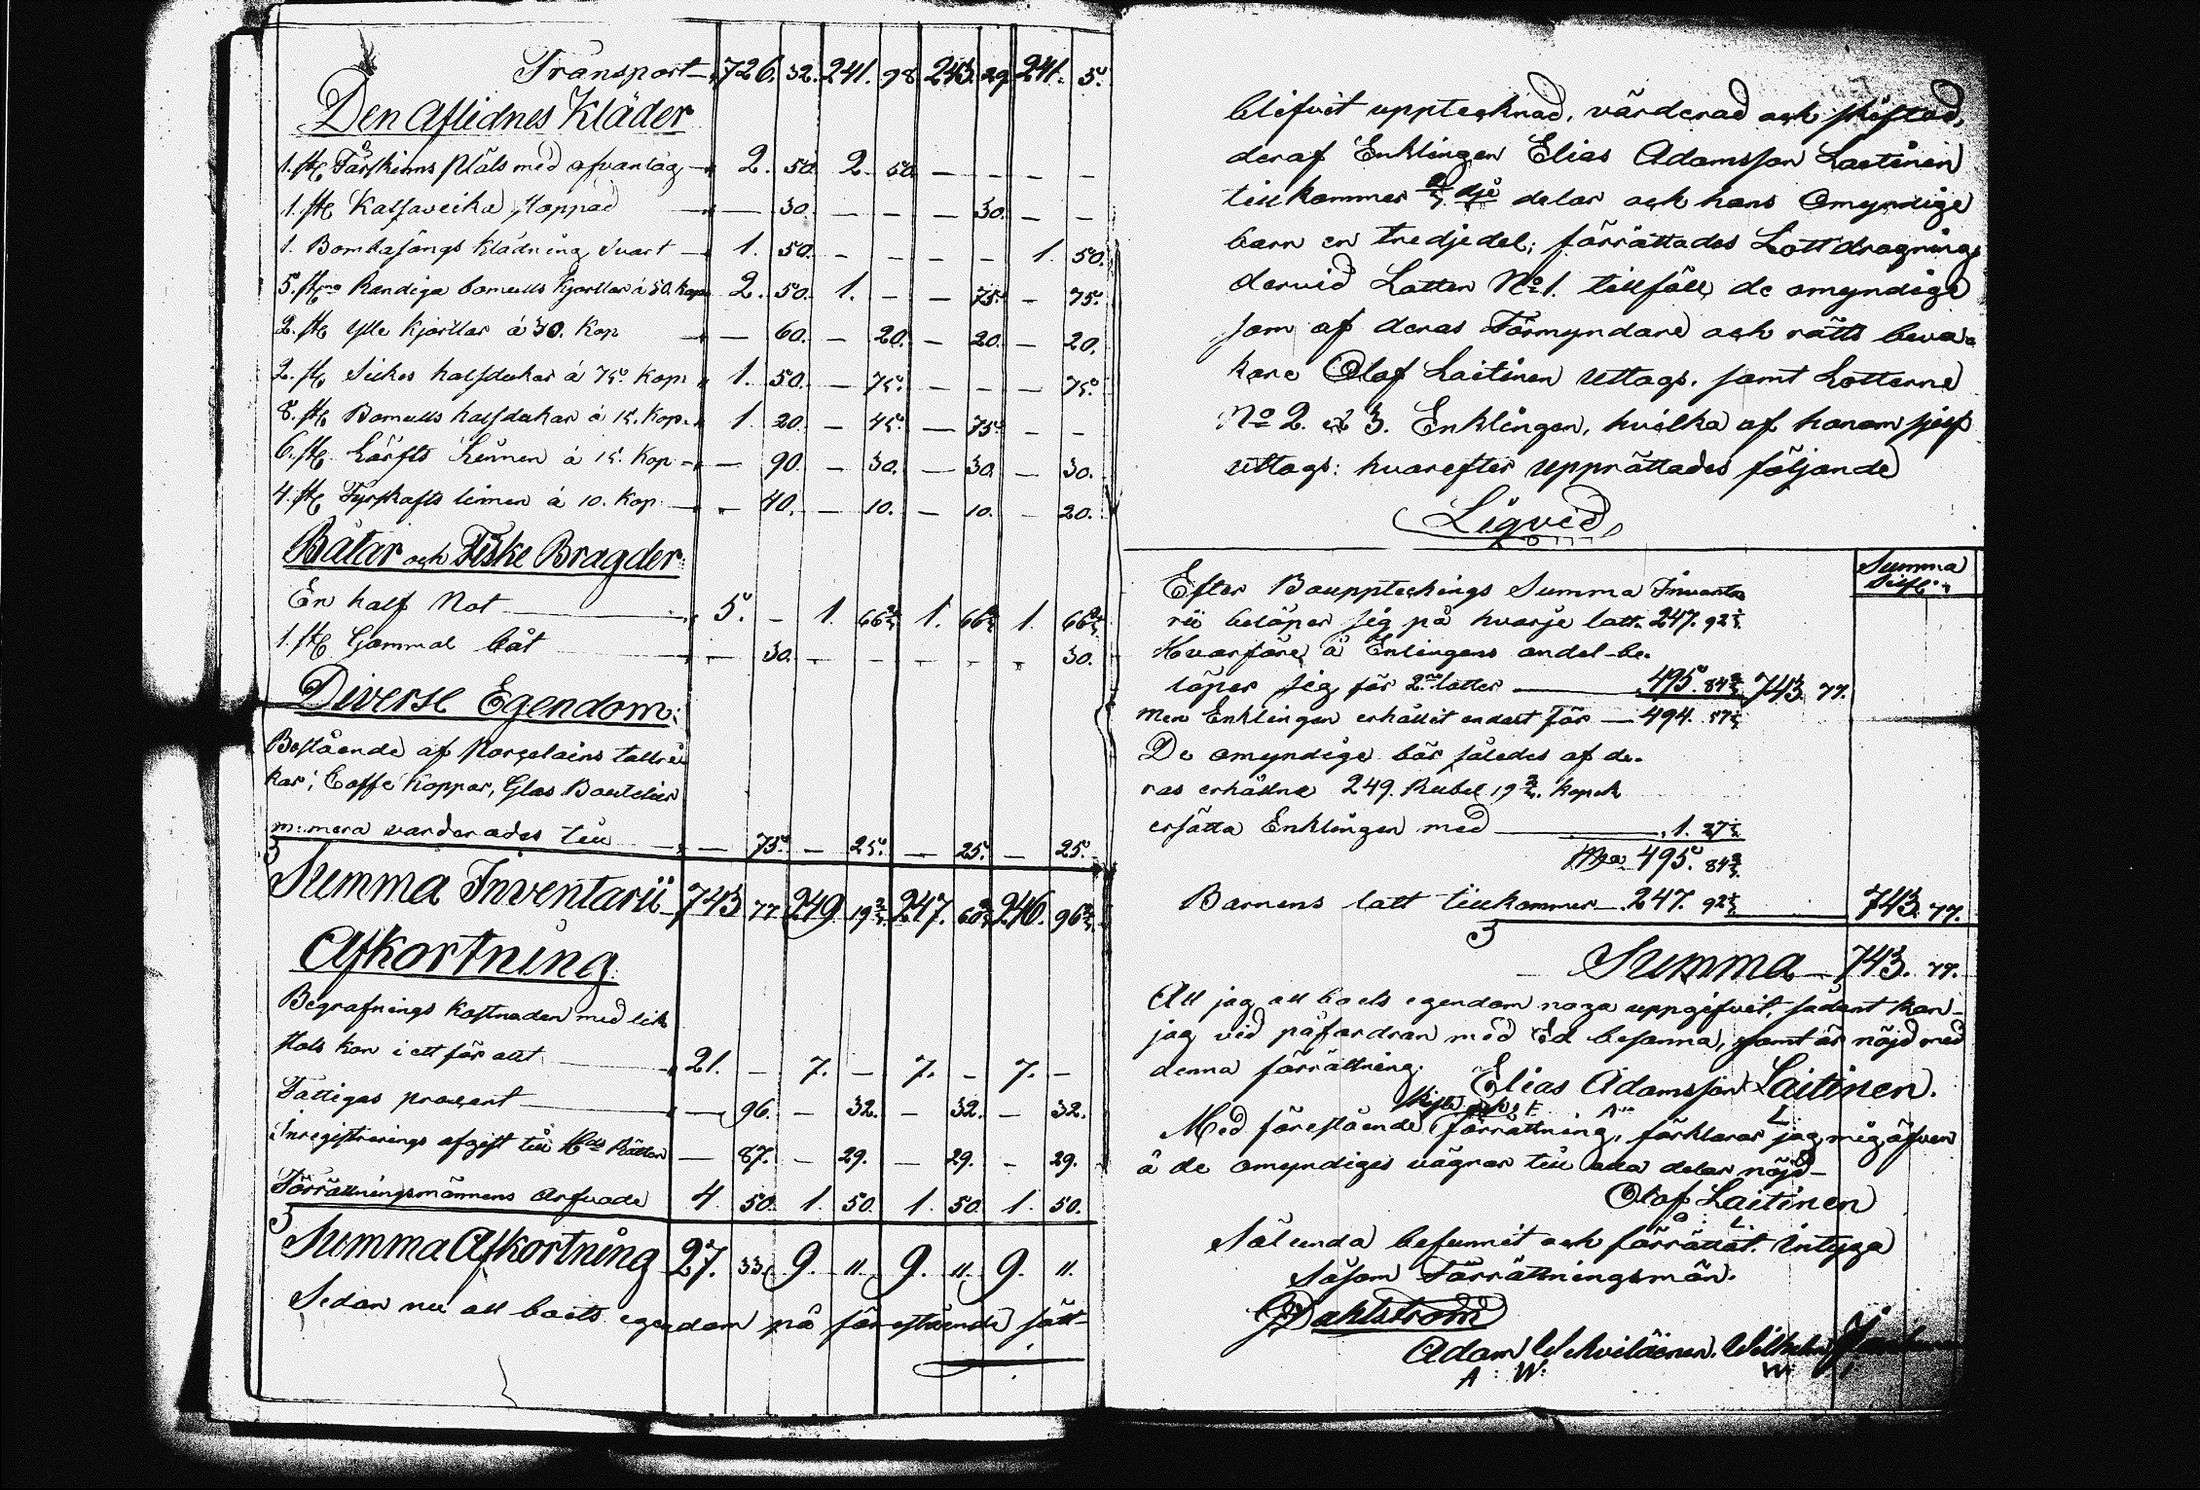 Transport 726. 32. 241. 98 243. 29. 241. 5.
Den Aflidnes Kläder
1. st. Fårskinns Päls med 2. 50. 2. 50. — — — —
1. st. Kalfaveika — 30. — — — 30. — —
1. Bombasängs Klädning Svart 1. 50. — — — — 1. 50.
5. st. Randiga bomulls Kjortlar á 50. Kop 2. 50. 1. — — 75. — 75.
2. st. Ylle Kjortlar á 30. Kop — 60. — 20. — 20. — 20.
2. st. Silkes halsdukar á 75. Kop 1. 50. — 75. — — — 75.
8. st. Bomulls halsdukar á 15. Kop. 1. 20. — 45. — 75. — —
6. st. Lärfts Linnen á 15. Kop — 90. — 30. — 30. — 30.
4. st. Fyrskafts linnen á 10. Kop — 40. — 10. — 10. — 20.
Båtar och Fiske Bragder
En half Not 5. — 1. 66⅔ 1. 66⅔ 1. 66⅔
1. st. Gammal båt — 30. — — — — — 30.
Diverse Egendom:
Bestående af Porcelains tallri
kar, Caffe Koppar, Glas Bouteliers
m: mera värderades till — 75. — 25. — 25. — 25.
Summa Inventarii 743 77 249 19⅔. 247. 60⅔ 246. 96⅔.
Afkortning
Begrafnings Kostnaden med lik
stols kon i ett för allt 21. — 7. — 7. — 7. —
Fattiges procent — 96. — 32. — 32. — 32.
Inregistrerings afgift till Hds Rätten — 87. — 29. — 29. — 29.
Förrättningsmännens Arfvode 4 50. 1. 50. 1. 50. 1. 50.
Summa Afkortning 27. 33. 9. 11. 9. 11. 9. 11.
Sedan nu all boets egendom på förestående sätt
blifvit upptecknad, värderad och skiftad,
deraf Enklingen Elias Adamsson Laitinen
tillkommer ⅔ dje delar och hans Omyndige
barn en tredjedel; förrättades Lottdragning
dervid Lotten No 1. tillföll de omyndige
som af deras Förmyndare och rätts beva=
kare Olof Laitinen uttogs. samt Lotterne
No 2. & 3. Enklingen, hvilka af honom sjelf
uttogs: hvarefter upprättades följande
Liqvid
Summa
Silf:r
Efter Bouppteknings Summa Inventa
rii belöper sig på hvarje lott. 247. 92⅓.
Hvarföre å Enlingens andel be-
löper sig för 2ne lotter 495. 84⅔ 743 77.
Men Enklingen erhållit endast för — 494. 57⅓
De omyndige bör således af de-
ras erhållne 249. Rubel 19⅔. Kopek
ersätta Enklingen med 1. 27⅓
495. 84⅔.
Barnens lott tillkommer 247. 92⅓ 743. 77.
Summa 743. 77.
All jag all boets egendom noga uppgifvit, sådant kan
jag vid påfordran med Ed besanna, samt är nöjd med
denna förrättning. Elias Adamsson Laitinen.
Med förestående förrättning, förklarar jag mig äfven
å de omyndiges vägnar till alla delar nöjd
Olof Laitinen
O: L.
Sålunda befunnit och förrättat. Intyga
Såsom Förrättningsmän.
Dahlström
Adam Wilhelm
A: W: W: